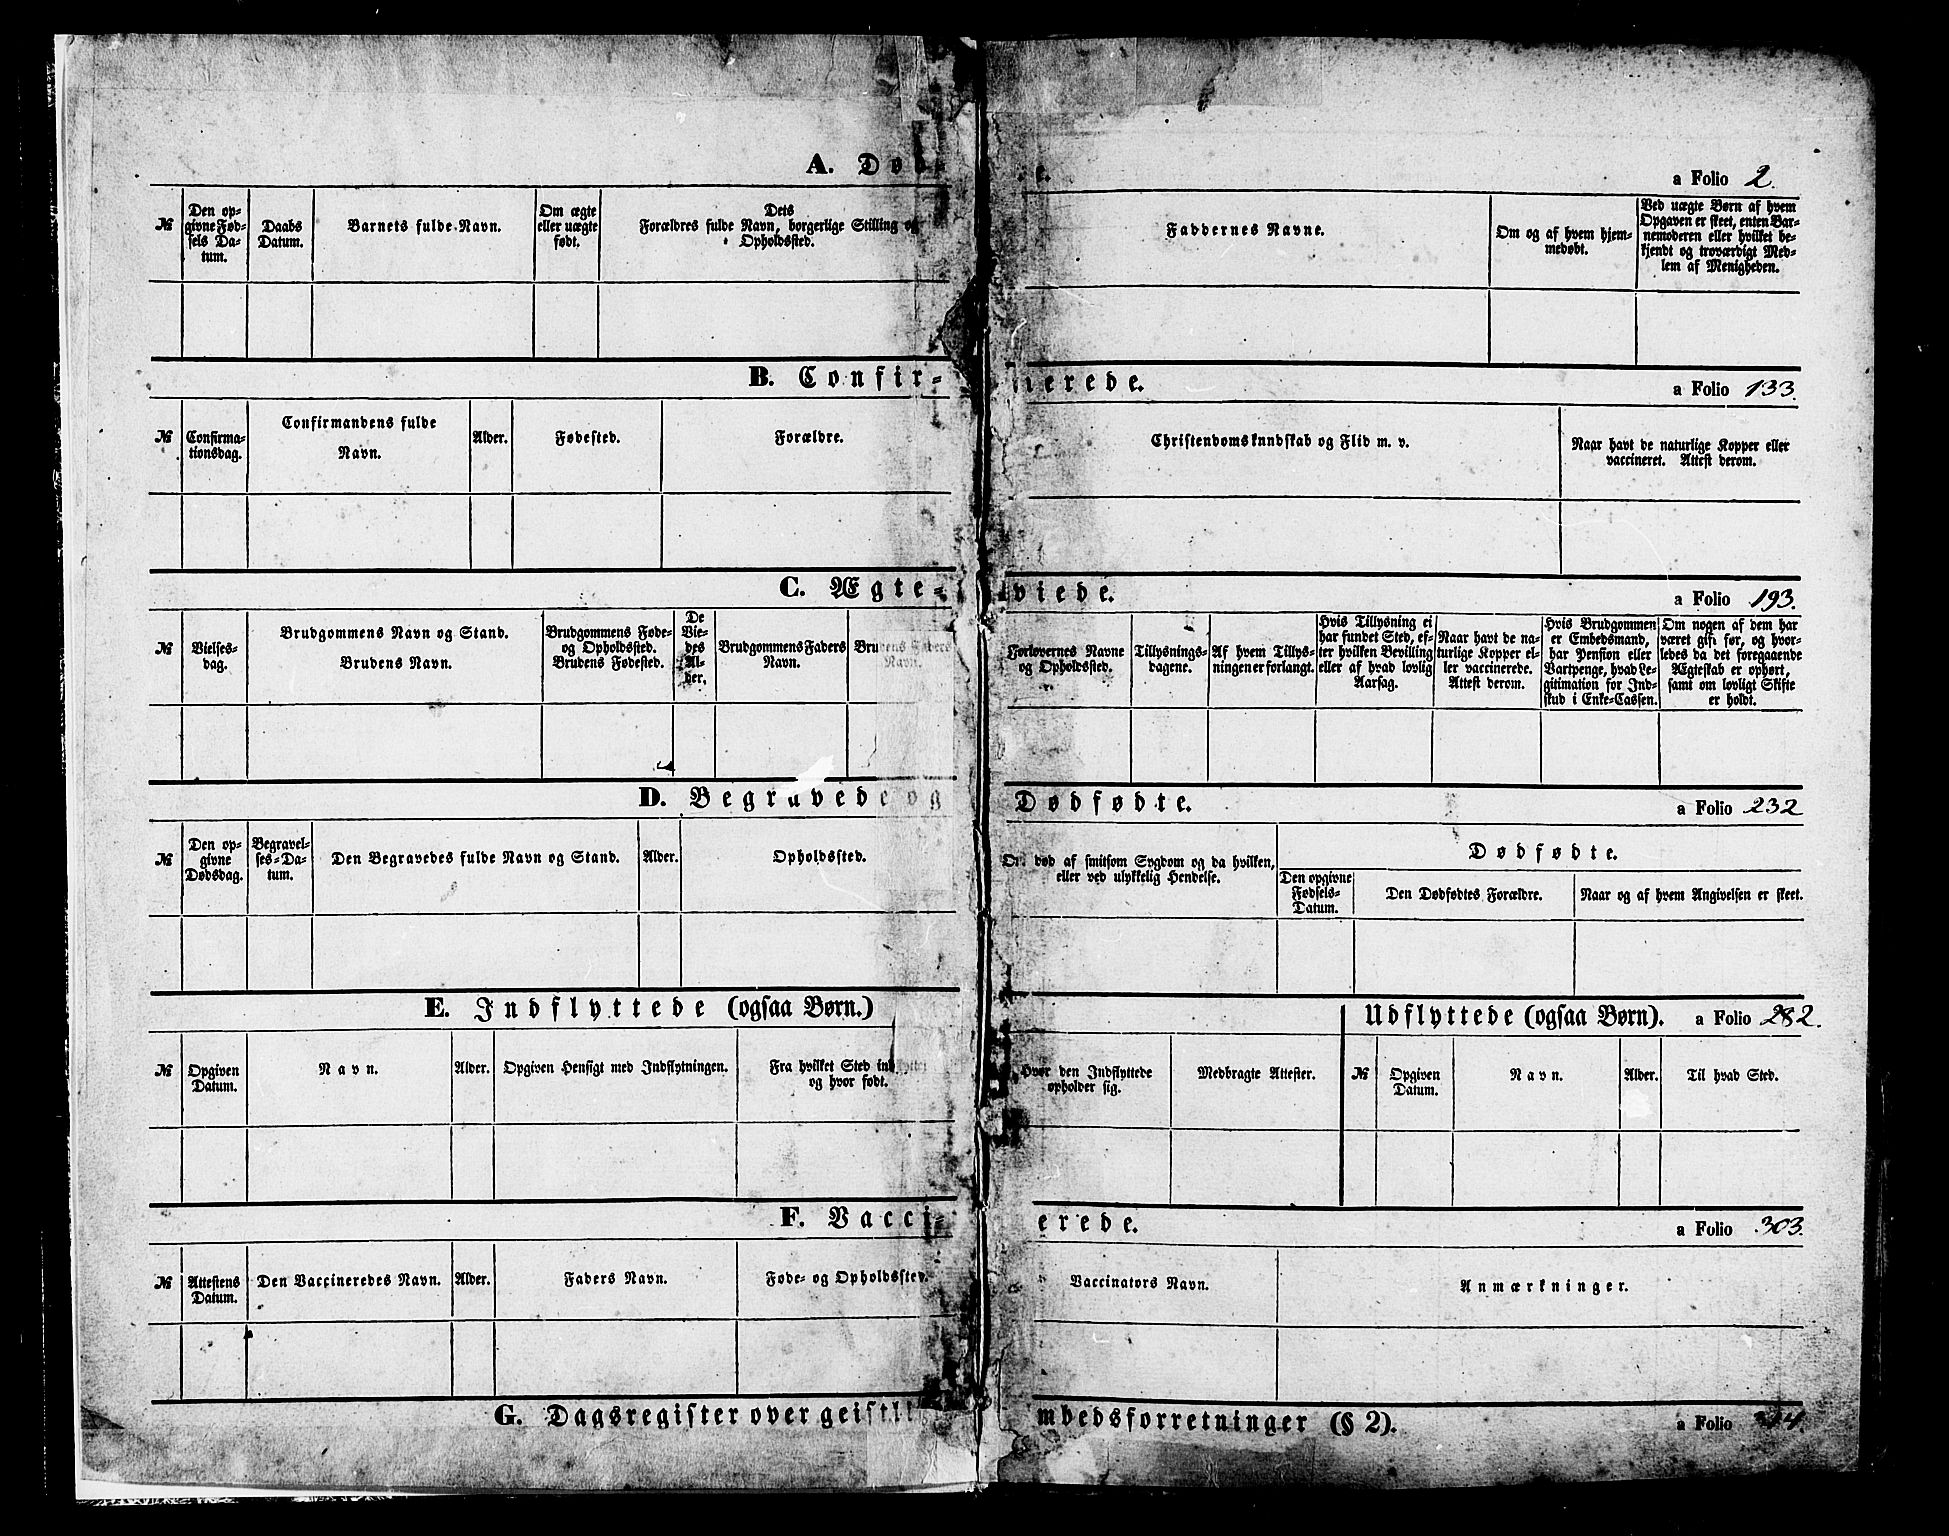 A. Døb- e. a Folio 2.
№
Den op-
givne Fød-
sels Da-
tum.
Daabs
Datum.
Barnets fulde Navn.
Om ægte
eller uægte
født.
Dets
Forældres fulde Navn, borgerlige Stilling og
Opholdssted.
Faddernes Navne.
Om og af hvem hjem-
medøbt.
Ved uægte Børn af hvem
Opgaven er skeet, enten Bar-
nemoderen eller hvilket be-
kjendt og troværdigt Med-
lem af Menigheden.
B. Confir- merede. a Folio 133.
№
Confirma-
tionsdag.
Confirmandens fulde
Navn.
Alder.
Fødested.
Forældre.
Christendomskundskab og Flid m. v.
Naar havt de naturlige Kopper eller
vaccineret. Attest derom.
C. Ægte- viede. a Folio 193.
№
Vielses-
dag.
Brudgommens Navn og Stand.
Brudens Navn.
Brudgommens Føde-
og Opholdssted.
Brudens Fødested.
De
Vie-
des
Al-
der.
Brudgommens Faders
Navn.
Brudens Faders
Navn.
Forlovernes Navne
og Opholdssted.
Tillysnings-
dagene.
Af hvem Tillys-
ningen er forlangt.
Hvis Tillysning ei
har fundet Sted, ef-
ter hvilken Bevilling
eller af hvad lovlig
Aarsag.
Naar havt de na-
turlige Kopper el-
ler vaccinerede.
Attest derom.
Hvis Brudgommen
er Embedsmand,
har Pension eller
Vartpenge, hvad Le-
gitimation for Ind-
skud i Enke-Cassen.
Om nogen af dem har
været gift før, og hvor-
ledes da det foregaaende
Ægteskab er ophørt,
samt om lovligt Skifte
er holdt.
D. Begravede og Dødfødte. a Folio 232
№
Den op-
givne
Dødsdag.
Begravel-
ses-Da-
tum.
Den Begravedes fulde Navn og Stand.
Alder.
Opholdssted.
Om død af smitsom Sygdom og da hvilken,
eller ved ulykkelig Hendelse.
Dødfødte.
Den opgivne
Fødsels-
Datum.
Den Dødfødtes Forældre.
Naar og af hvem Angivelsen er skeet.
E. Indflyttede (ogsaa Børn.) Udflyttede (ogsaa Børn). a Folio 282.
№
Opgiven
Datum.
Navn.
Alder.
Opgiven Hensigt med Indflytningen.
Fra hvilket Sted indflyttet
og hvor født.
Hvor den Indflyttede
opholder sig.
Medbragte Attester.
№
Opgiven
Datum.
Navn.
Alder.
Til hvad Sted.
F. Vacci- erede. a Folio 303.
№
Attestens
Datum.
Den Vaccineredes Navn.
Alder.
Faders Navn.
Føde- og Opholdssted.
Vaccinators Navn.
Anmærkninger.
G. Dagsregister over geistli mbedsforretninger (§ 2). a Folio